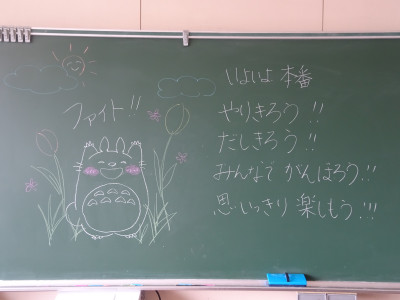 ファイト!!
いよいよ本番
やりきろう!!
だしきろう!!
みんなで がんばろう!!
思いっきり 楽しもう!!!